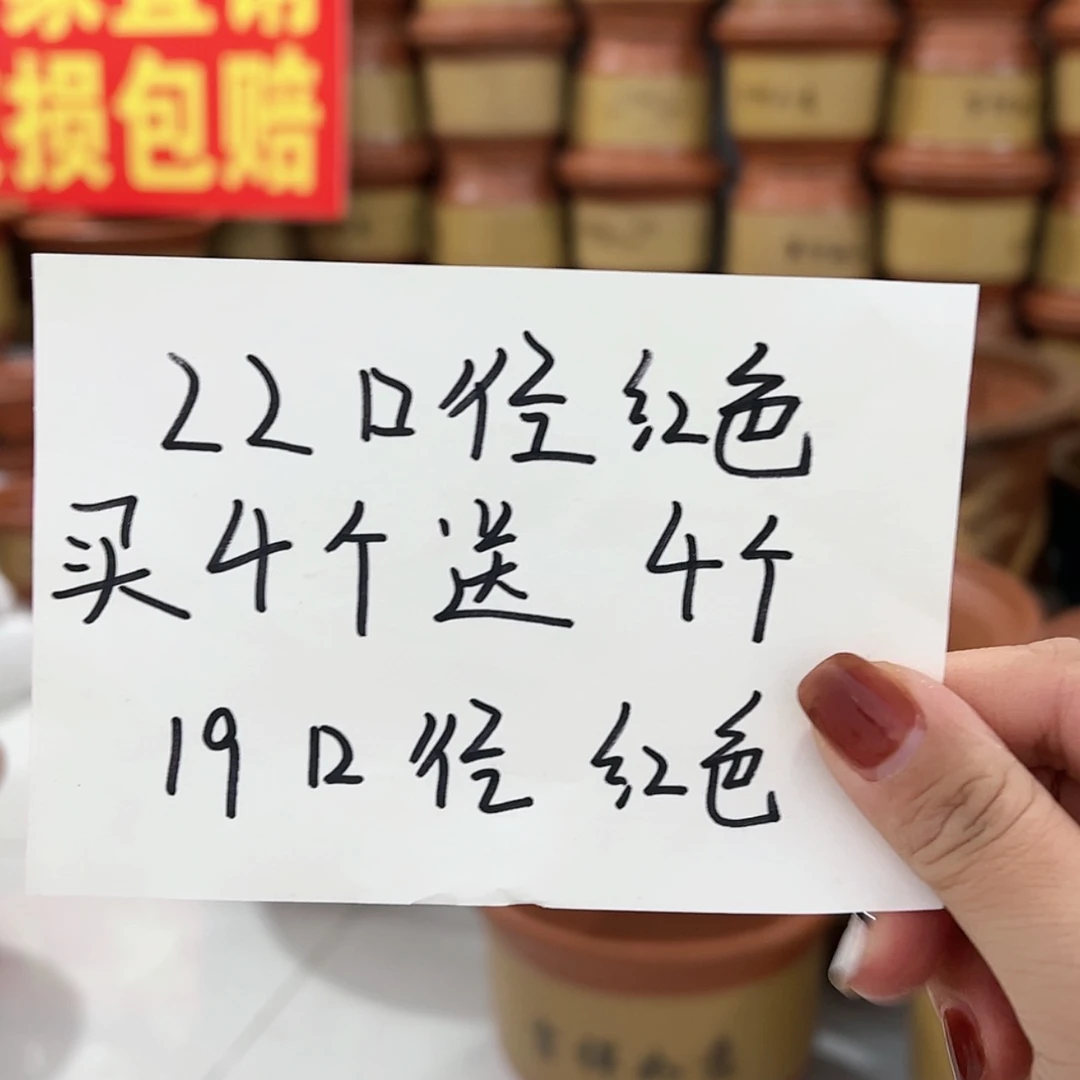 损包赔
22口径红色
买4个送 4个
19口径 红色